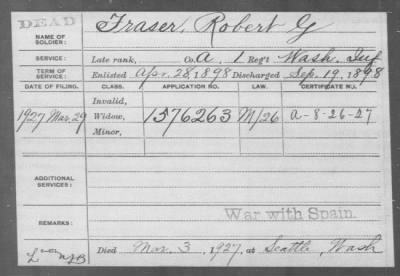 DEAD
NAME OF SOLDIER: Fraser, Robert G
SERVICE: Late rank, Co. A, 1 Reg't Wash. Inf
TERM OF SERVICE: Enlisted Apr. 28, 1898 Discharged Sep. 19, 1898
DATE OF FILING. CLASS. APPLICATION NO. LAW. CERTIFICATE NO.
Invalid,
1927 Mar. 29 Widow, 1576263 M/26 A-8-26-27
Minor,
ADDITIONAL SERVICES:
REMARKS: War with Spain.
Died Mar. 3, 1927, at Seattle, Wash